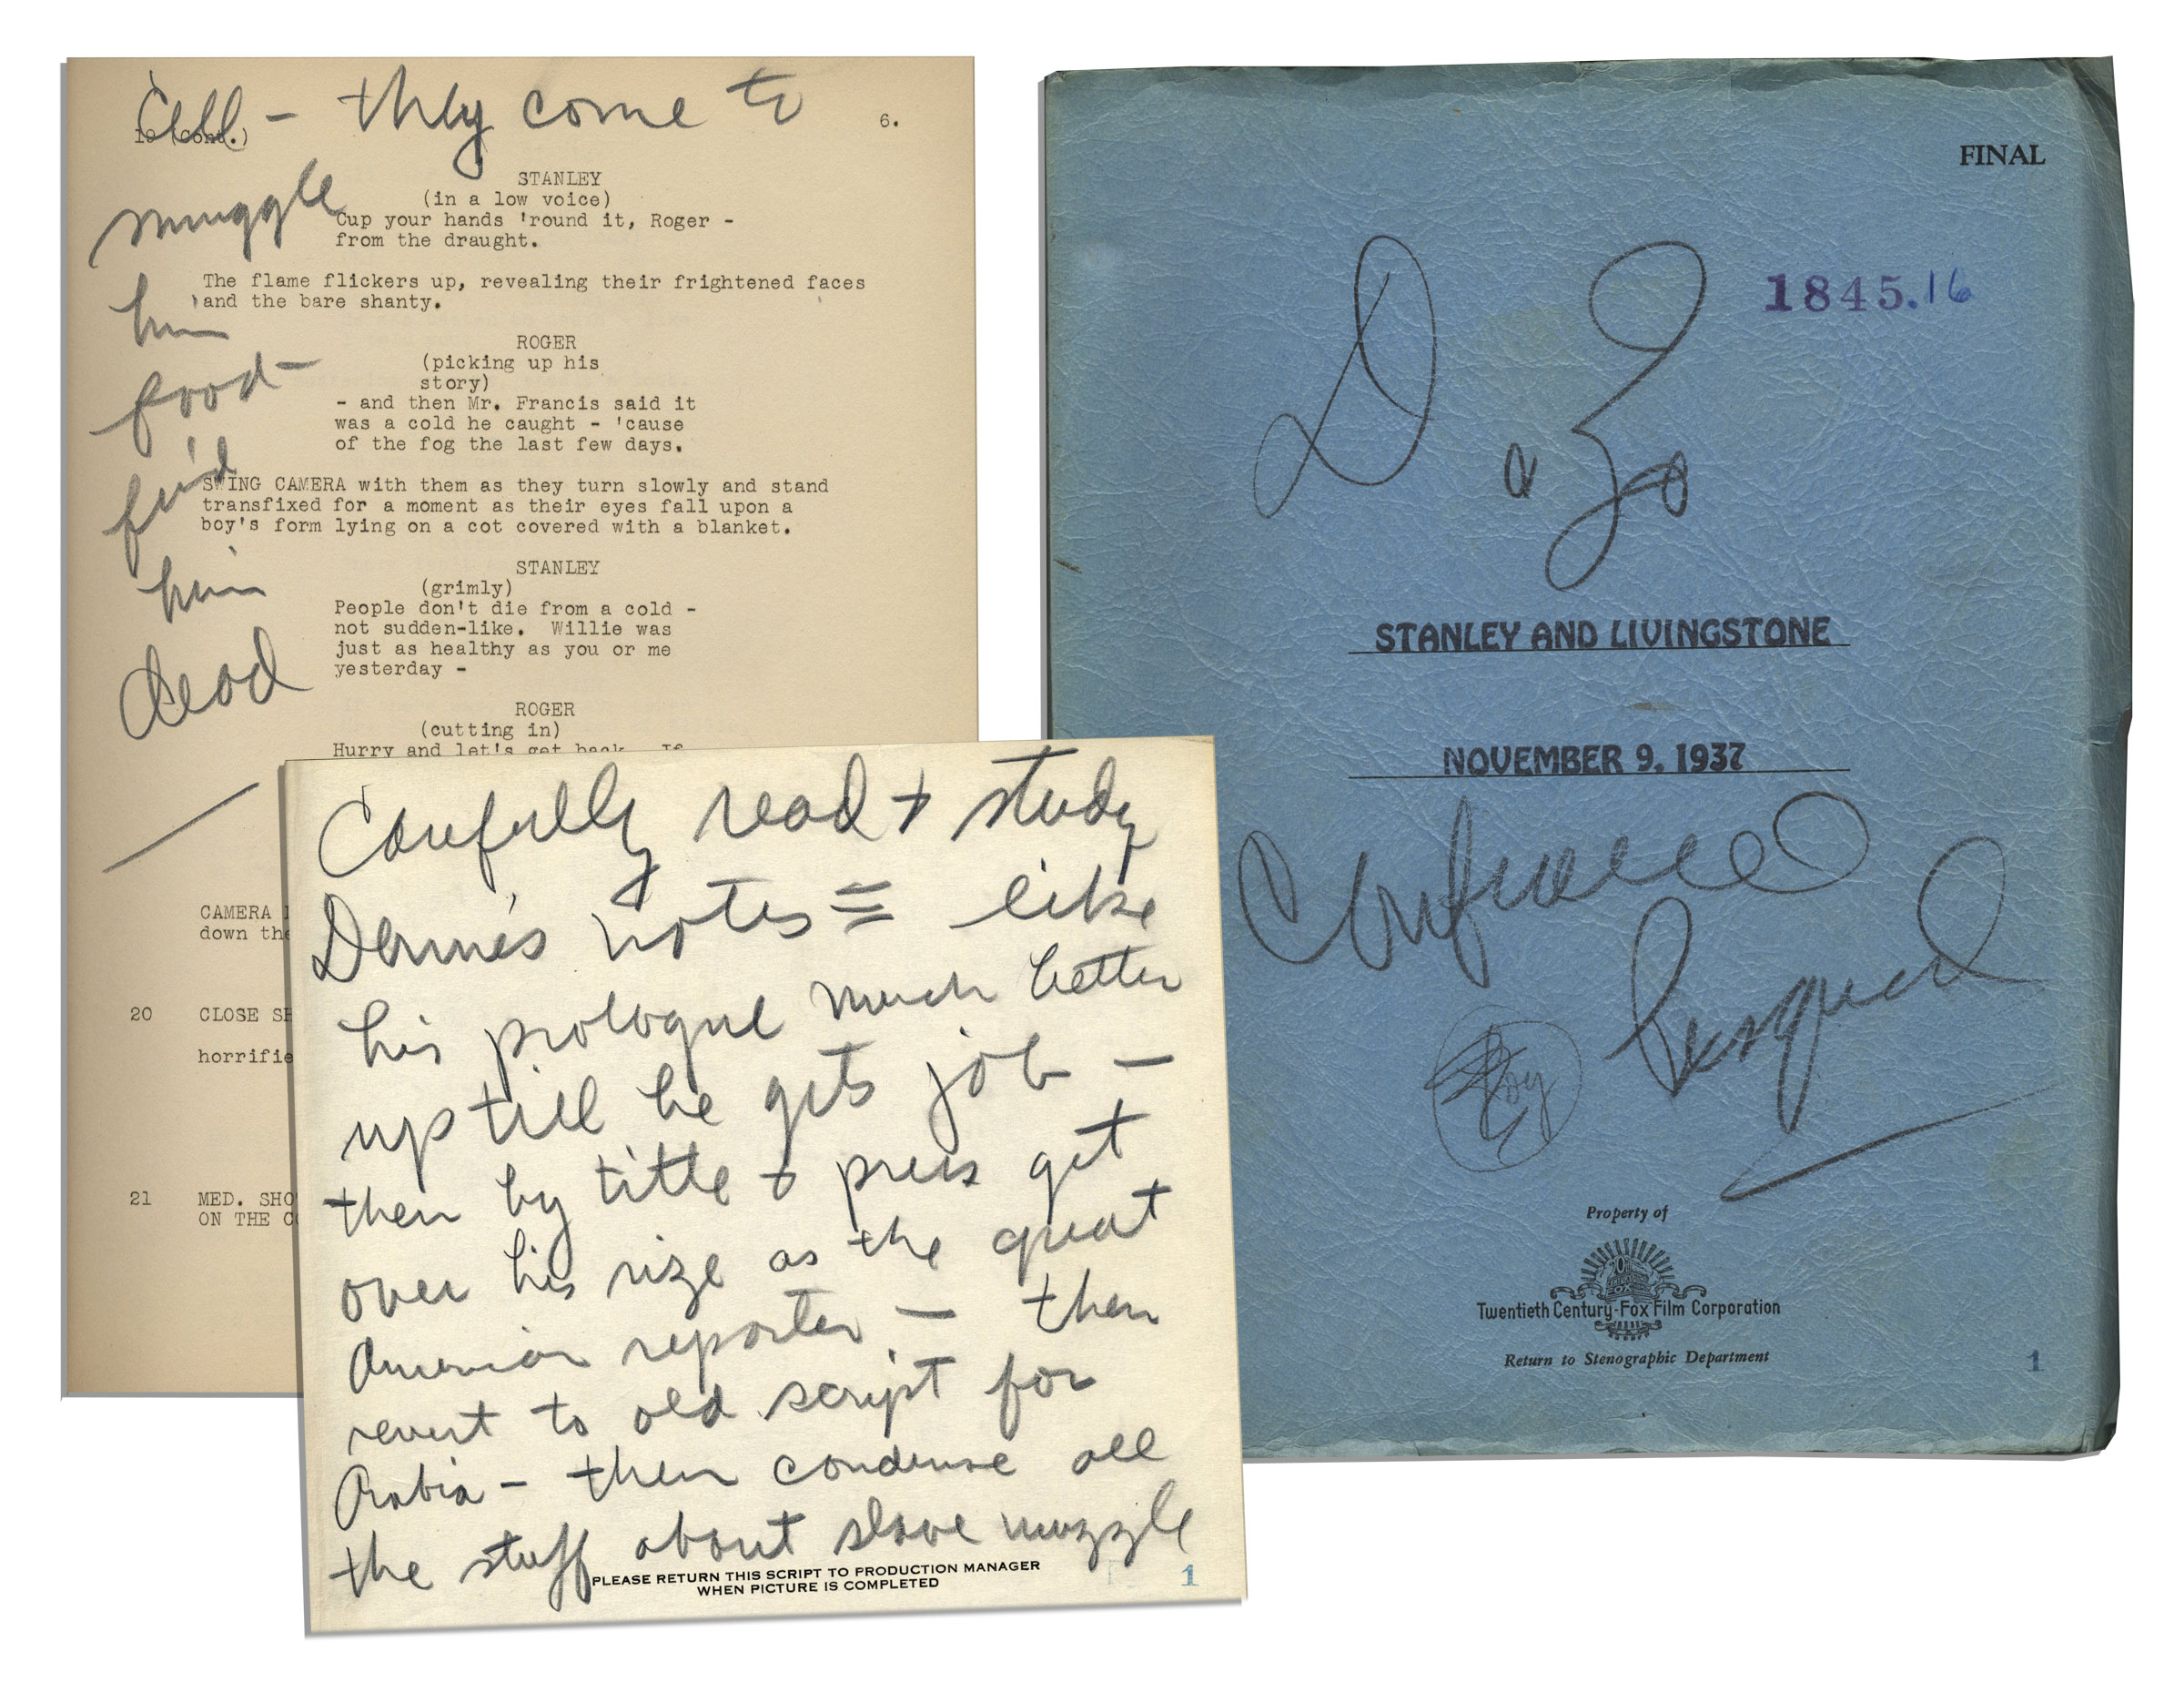 Cell - they come to
19 (Cont.)
6.
smuggle
him
food -
find
him
dead
STANLEY
(in a low voice)
Cup your hands 'round it, Roger -
from the draught.
The flame flickers up, revealing their frightened faces
and the bare shanty.
ROGER
(picking up his
story)
- and then Mr. Francis said it
was a cold he caught - 'cause
of the fog the last few days.
SWING CAMERA with them as they turn slowly and stand
transfixed for a moment as their eyes fall upon a
boy's form lying on a cot covered with a blanket.
STANLEY
(grimly)
People don't die from a cold -
not sudden-like. Willie was
just as healthy as you or me
yesterday -
ROGER
(cutting in)
Hurry and let's get back. If
CAMERA
down the
20 CLOSE SH
horrifie
21 MED. SHO
ON THE C
Carefully read + study
Dennis notes = like
his prologue much better
up till he gets job -
then by title + press get
over his rize as the great
American reporter - then
revert to old script for
Arabia - then condense all
the stuff about slave muzzle
PLEASE RETURN THIS SCRIPT TO PRODUCTION MANAGER
WHEN PICTURE IS COMPLETED
1
FINAL
1845.16
D Z
STANLEY AND LIVINGSTONE
NOVEMBER 9, 1937
Property of
Twentieth Century-Fox Film Corporation
Return to Stenographic Department
1